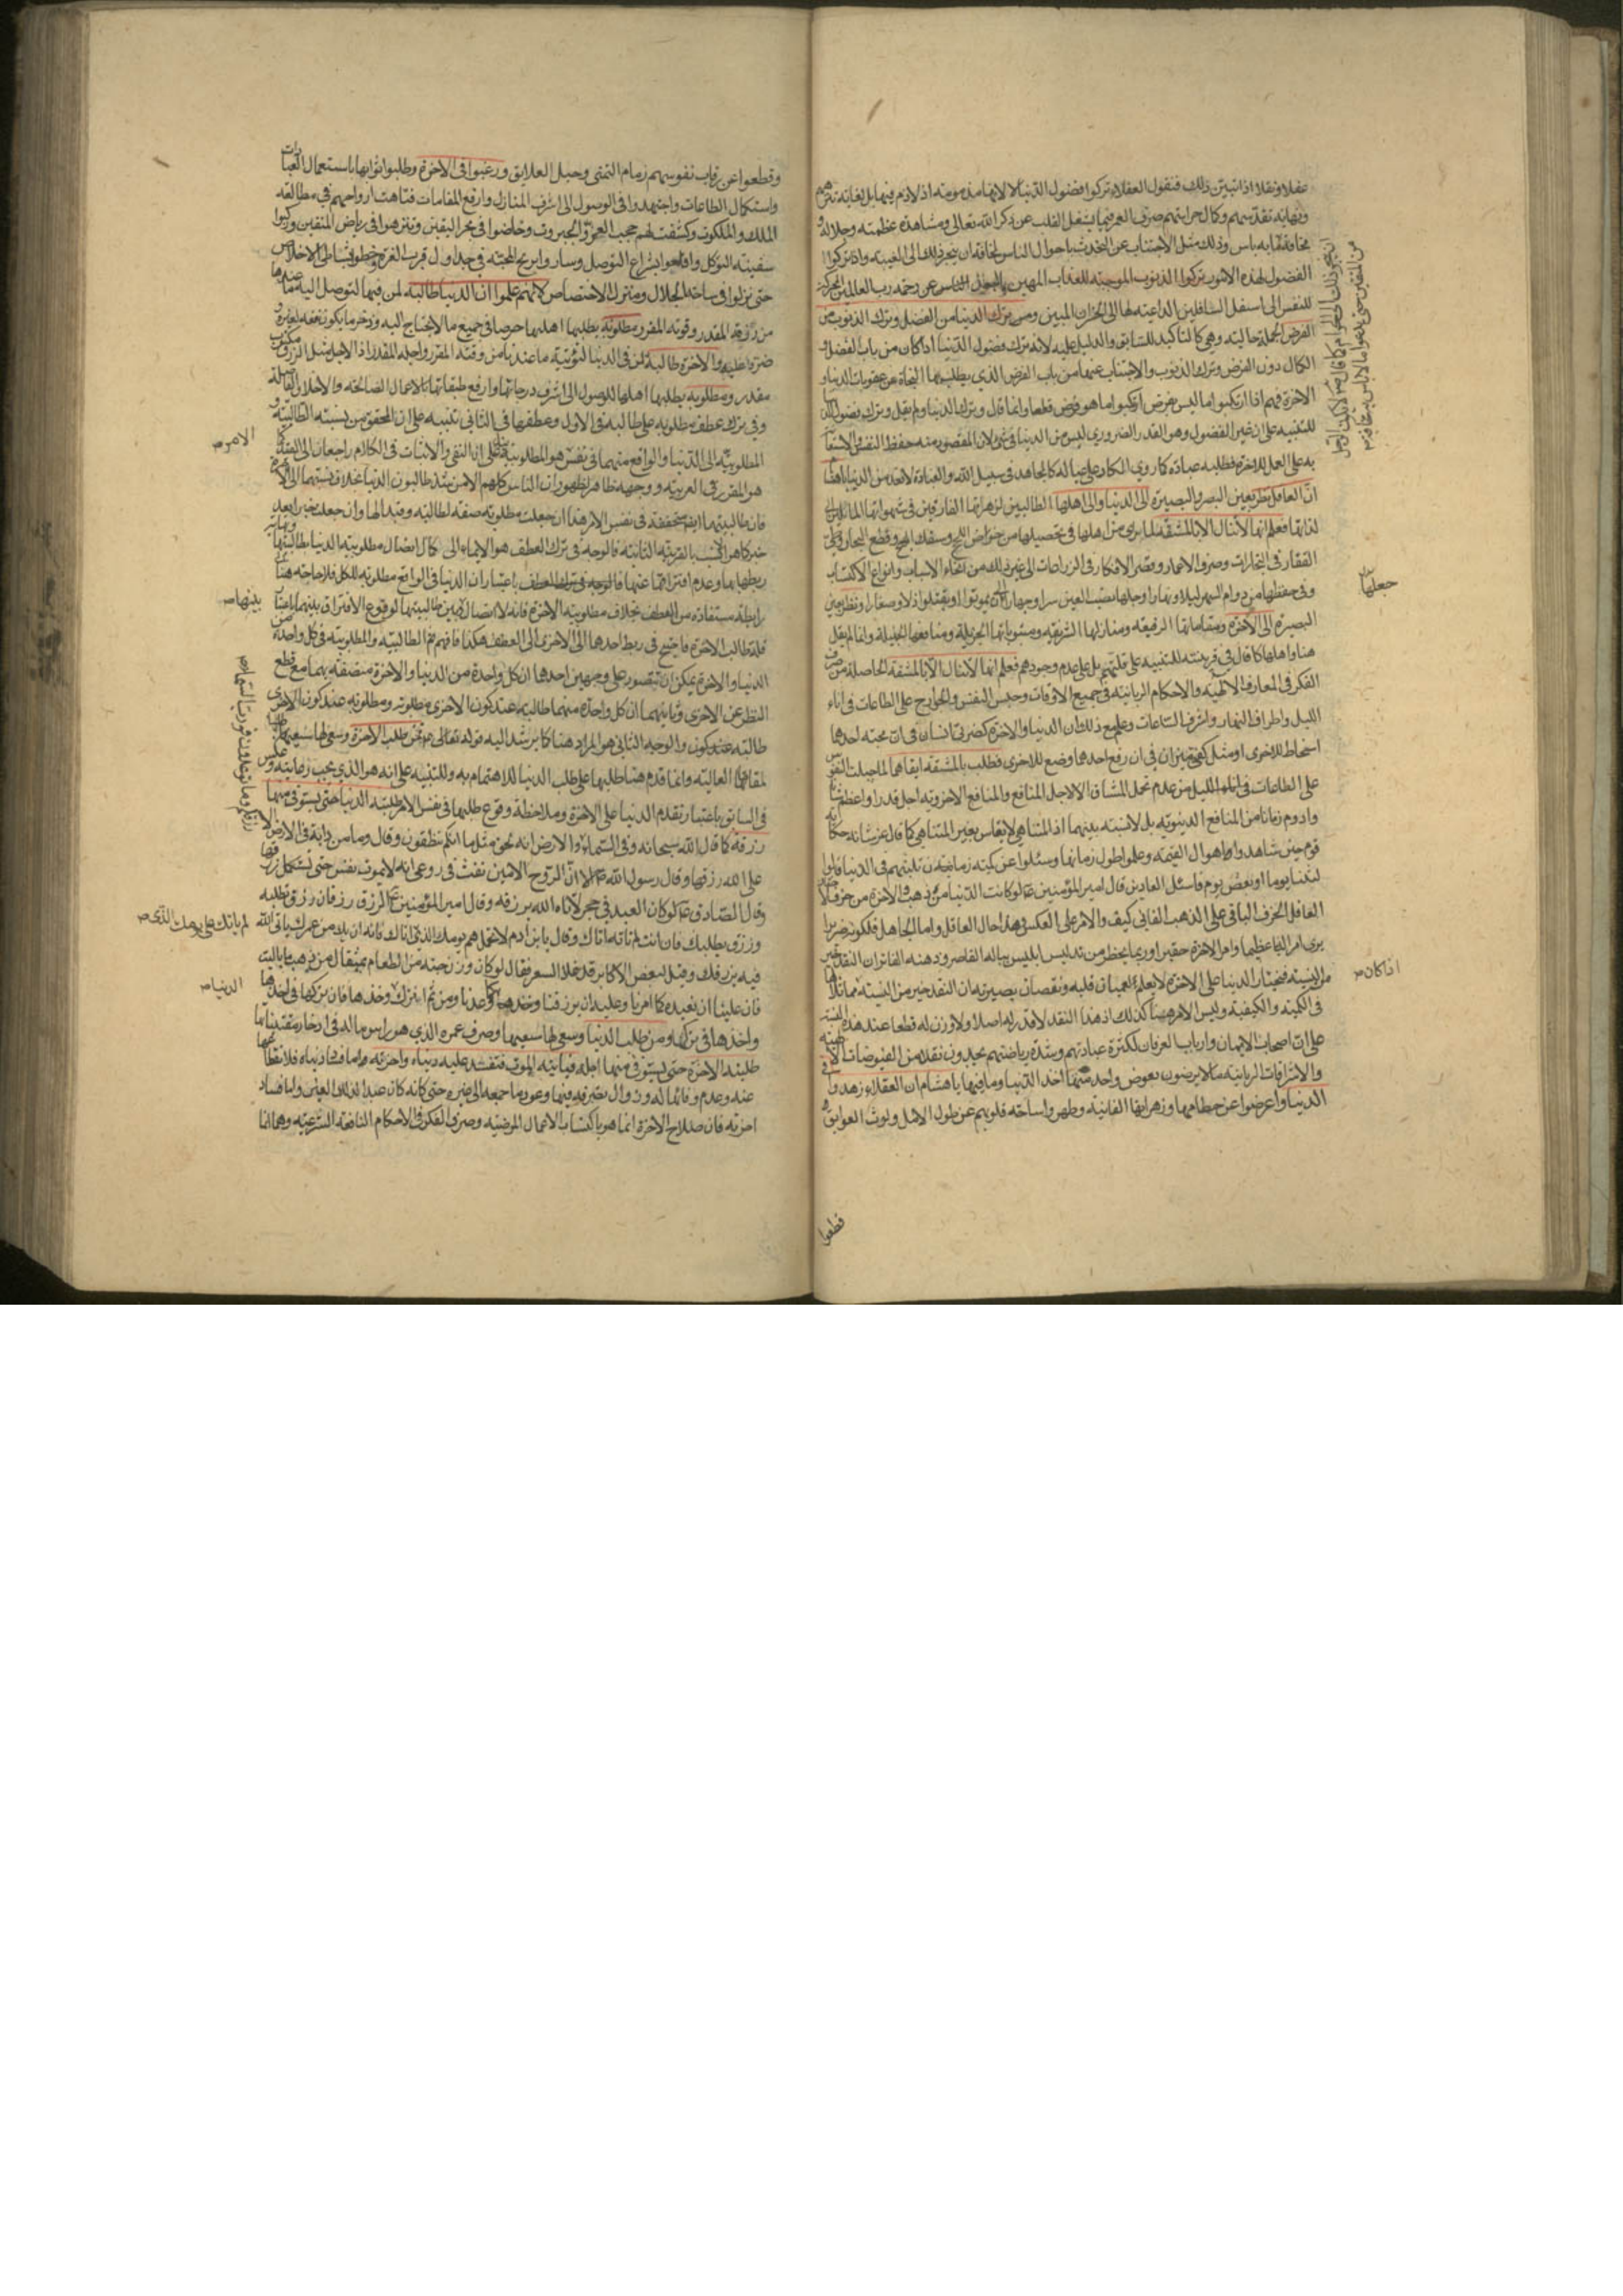 عقلا ونقلا اذا تبين ذلك فنقول العقلاء تركوا فضول الدنيا لا لانها مذمومة اذ لا ذم فيها بل لغاية تنزههم
ونهاية تقدسهم وكمال حراستهم صرف العمر فيما يشغل القلب عن ذكر الله تعالى ومشاهدة عظمته وجلاله و
مخافة ما به باس وذلك مثل الاجتناب عن التحدث باحوال الناس لمخافة ان ينجر ذلك الى الغيبة واذ تركوا
الفضول لهذه الامور تركوا الذنوب الموجبة للعذاب المهين عن رحمة رب العالمين
للنفس الى اسفل السافلين الداعية لها الى الخزان المبين ومن ترك الدنيا من الفضل وترك الذنوب من
الفرض الجملة حالية وهي كالتاكيد للسابق والدليل عليه لانه ترك فضول الدنيا اذا كان من باب الفضل و
الكمال دون الفرض وترك الذنوب والاجتناب عنها من باب الفرض الذي يطلب بها النجاة من عقوبات الدنيا و
الاخرة فهم اذا ارتكبوا ما ليس بفرض ارتكبوا ما هو فرض قطعا وانما قال وترك الدنيا ولم يقل وترك فضول الدنيا
للتنبيه على ان غير الفضول وهو القدر الضروري ليس من الدنيا في شيء لان المقصود منه حفظ النفس والاستعانة
به على العمل للاخرة فطلبه عبادة كما روي الكاد على عياله كالمجاهد في سبيل الله والعبادة لا تعد من الدنيا يا هشام
ان العاقل نظر بعين البصر والبصيرة الى الدنيا والى اهلها الطالبين لزهراتها الفارقين في شهواتها المائلين الى
لذاتها فعلم انها لا تنال الا بالمشقة لما يرى من اهلها في تحصيلها من خوض اللجج وسفك المهج وقطع البحار وطي
القفار في التجارات وصرف الاعمار وبعض الافكار في الزراعات الى غير ذلك من انحاء الاسباب وانواع الاكتساب
وفي حفظها من دوام السهر ليلا ونهارا وجعلها نصب العين سرا وجهارا الى ان يموتوا او يقتلوا ذلا وصغارا ونظر بعين
البصيرة الى الاخرة ومقاماتها الرفيعة ومنازلها الشريفة ومثوباتها الجزيلة ومنافعها الجميلة وانما لم يقل
هنا واهلها كما قال في قرينته للتنبيه على قلتهم بل على عدم وجودهم فعلم انها لا تنال الا بالمشقة الحاصلة من صرف
الفكر في المعارف الالهية والاحكام الربانية في جميع الاوقات وحبس النفس والجوارح على الطاعات في اناء
الليل واطراف النهار واشرف الساعات وعلم مع ذلك ان الدنيا والاخرة كضرتي انسان في ان محبة احدهما
اسخاط للاخرى او مثل كفتي ميزان في ان رفع احدهما وضع للاخرى فطلب بالمشقة ابقاهما لما جبلت النفوس
على الطاعات في اناء الليل من عدم تحمل المشاق الا لاجل المنافع والمنافع الاخروية اجل قدرا واعظم شانا
وادوم زمانا من المنافع الدنيوية بل لا نسبة بينهما اذ المتناهي لا يقاس بغير المتناهي كما قال عز شانه حكاية
قوم حين شاهدوا اهوال القيمة وعلموا طول زمانها وسئلوا عن كمية زمان مدة لبثهم في الدنيا قالوا
لبثنا يوما او بعض يوم فاسئل العادين قال امير المؤمنين ع لو كانت الدنيا من ذهب والاخرة من خزف لاختار
العاقل الخزف الباقي على الذهب الفاني كيف والامر على العكس وهذا حال العاقل واما الجاهل فلكونه ضريرا
يرى امر الدنيا عظيما وامر الاخرة حقيرا وربما يخطر من تدليس ابليس بباله القاصر وذهنه الفاتر ان النقد خير
من النسية فيختار الدنيا على الاخرة لا يعلم لعميان قلبه ونقصان بصيرته ان النقد خير من النسية تماثلها
في الكمية والكيفية وليس الامر هيهنا كذلك اذ هذا النقد لا قدر له اصلا ولا وزن له قطعا عند هذه النسية
على ان اصحاب الايمان وارباب العرفان لكثرة عبادتهم وشدة رياضتهم يجدون نقدا من الفيوضات الالهية
والاشراقات الربانية ما لا يرضون بعوض واحد منها اخذ الدنيا وما فيها يا هشام ان العقلاء زهدوا في
الدنيا واعرضوا عن حطامها وزهراتها الفانية وطهروا ساحة قلوبهم عن طول الامل ولوث العوايق و
جعلها
اذا كان
قطعوا
وقطعوا عن رقاب نفوسهم زمام التمني وحبل العلايق ورغبوا في الاخرة وطلبوا ثوابها باستعمال العبادات
واستكمال الطاعات واجتهدوا في الوصول الى اشرف المنازل وارفع المقامات فتاهت ارواحهم في مطالعة
الملك والملكوت وكشفت لهم حجب العز والجبروت وخاضوا في بحر اليقين وتنزهوا في رياض المتقين وركبوا
سفينة التوكل واقلعوا بشراع التوسل وساروا بريح المحبة في جداول قرب العزة وحطوا بشاطئ الاخلاص
حتى نزلوا في ساحة الجلال ومنزل الاختصاص لانهم علموا ان الدنيا طالبة لمن فيها لتوصل اليه ما عندها
من رزقه المقدر وقوته المقرر مطلوبة يطلبها اهلها حرصا في جميع ما لا يحتاج اليه وذخر ما يكون نفعه لغيره و
ضره عليه والاخرة طالبة لمن في الدنيا لتؤتيه ما عندها من وقته المقرر واجله المقدر اذ الاجل مثل الرزق مكتوب
مقدر ومطلوبة يطلبها اهلها للوصول الى اشرف درجاتها وارفع طبقاتها بالاعمال الصالحة والاخلاق الفاضلة
وفي ترك عطف مطلوبة على طالبة في الاول وعطفها في الثاني تنبيه على ان المحقق من نسبة الطالبية و
المطلوبية الى الدنيا والواقع منهما في نفس هو المطلوبية بناء على ان النفي والاثبات في الكلام راجعان الى القيد كما
هو المقرر في العربية ووجهه ظاهر لظهور ان الناس كلهم الا من شذ طالبون الدنيا بخلاف نسبتهما الى الاخرة
فان طالبيتها ايضا متحققة في نفس الامر هذا ان جعلت مطلوبة صفة لطالبة وقيدا لها وان جعلت خبرا بعد
خبر كما هو الانسب بالقرينة الثانية فالوجه في ترك العطف هو الايماء الى كمال اتصال مطلوبية الدنيا بطالبيتها
ربطها بها وعدم افتراقها عنها فالوجه في ترك العطف باعتبار ان الدنيا في الواقع مطلوبة للكل فلا حاجة هنا
رابطة مستفادة من العطف بخلاف مطلوبية الاخرة فانه لا اتصال بين طالبيتها لوقوع الافتراق بينهما باعتبار
قلة طالب الاخرة فاحتيج في ربط احدهما الى الاخرى الى العطف هكذا فافهم ثم الطالبية والمطلوبية في كل واحدة من
الدنيا والاخرة يمكن ان تتصور على وجهين احدهما ان كل واحدة من الدنيا والاخرة متصفة بهما مع قطع
النظر عن الاخرى وثانيهما ان كل واحدة منهما طالبة عند كون الاخرى مطلوبة ومطلوبة عند كون الاخرى
طالبة والوجه الثاني هو المراد هنا كما يرشد اليه قوله فمن طلب الاخرة وسعى لها سعيها
لمقاماتها العالية وانما قدم هنا طلبها على طلب الدنيا للاهتمام به وللتنبيه على انه هو الذي يجب رعايته وعكس
في السابق باعتبار تقدم الدنيا على الاخرة وملاحظة وقوع طلبها في نفس الامر طلبته الدنيا حتى يستوفي منها
رزقه كما قال الله سبحانه وفي السماء والارض انه لحق مثل ما انكم تنطقون وقال وما من دابة في الارض الا
على الله رزقها وقال رسول الله ص الا ان الروح الامين نفث في روعي انه لا يموت نفس حتى تستكمل رزقها
وقال الصادق ع لو كان العبد في حجر لاتاه الله برزقه وقال امير المؤمنين ع الرزق رزقان رزق تطلبه
ورزق يطلبك فان انت لم تاته اتاك وقال يا بن ادم لا تحمل هم يومك الذي اتاك فانه ان يك من عمرك يات الله
فيه برزقك وقيل لبعض الاكابر قد غلا السعر فقال لو كان وزن حبة من الطعام بمثقال من ذهب ما باليت
فان علينا ان نعبده كما امرنا وعليه ان يرزقنا كما وعدنا ومن ثم اترك وخذها فان تركها في اخذها
واخذها في تركها ومن طلب الدنيا وسعى لها سعيها وصرف عمره الذي هو راس ماله في ادخار مقتنياتها
طلبته الاخرة حتى يستوفي منها اجله فياتيه الموت فتفسد عليه دنياه واخرته واما فساد دنياه فلانقطاعها
عنه وعدم وفائها له وزوال تصرفه فيها وعود ما جمعه الى غيره حتى كانه كان عبدا لذلك الغير واما فساد
اخرته فان صلاح الاخرة انما هو باكتساب الاعمال المرضية وصرف الفكر في الاحكام النافعة الشرعية وهما انما
الامر
بينهما
رزقكم وما توعدون فورب السماء
لم ياتك على يومك الذي
الدنيا